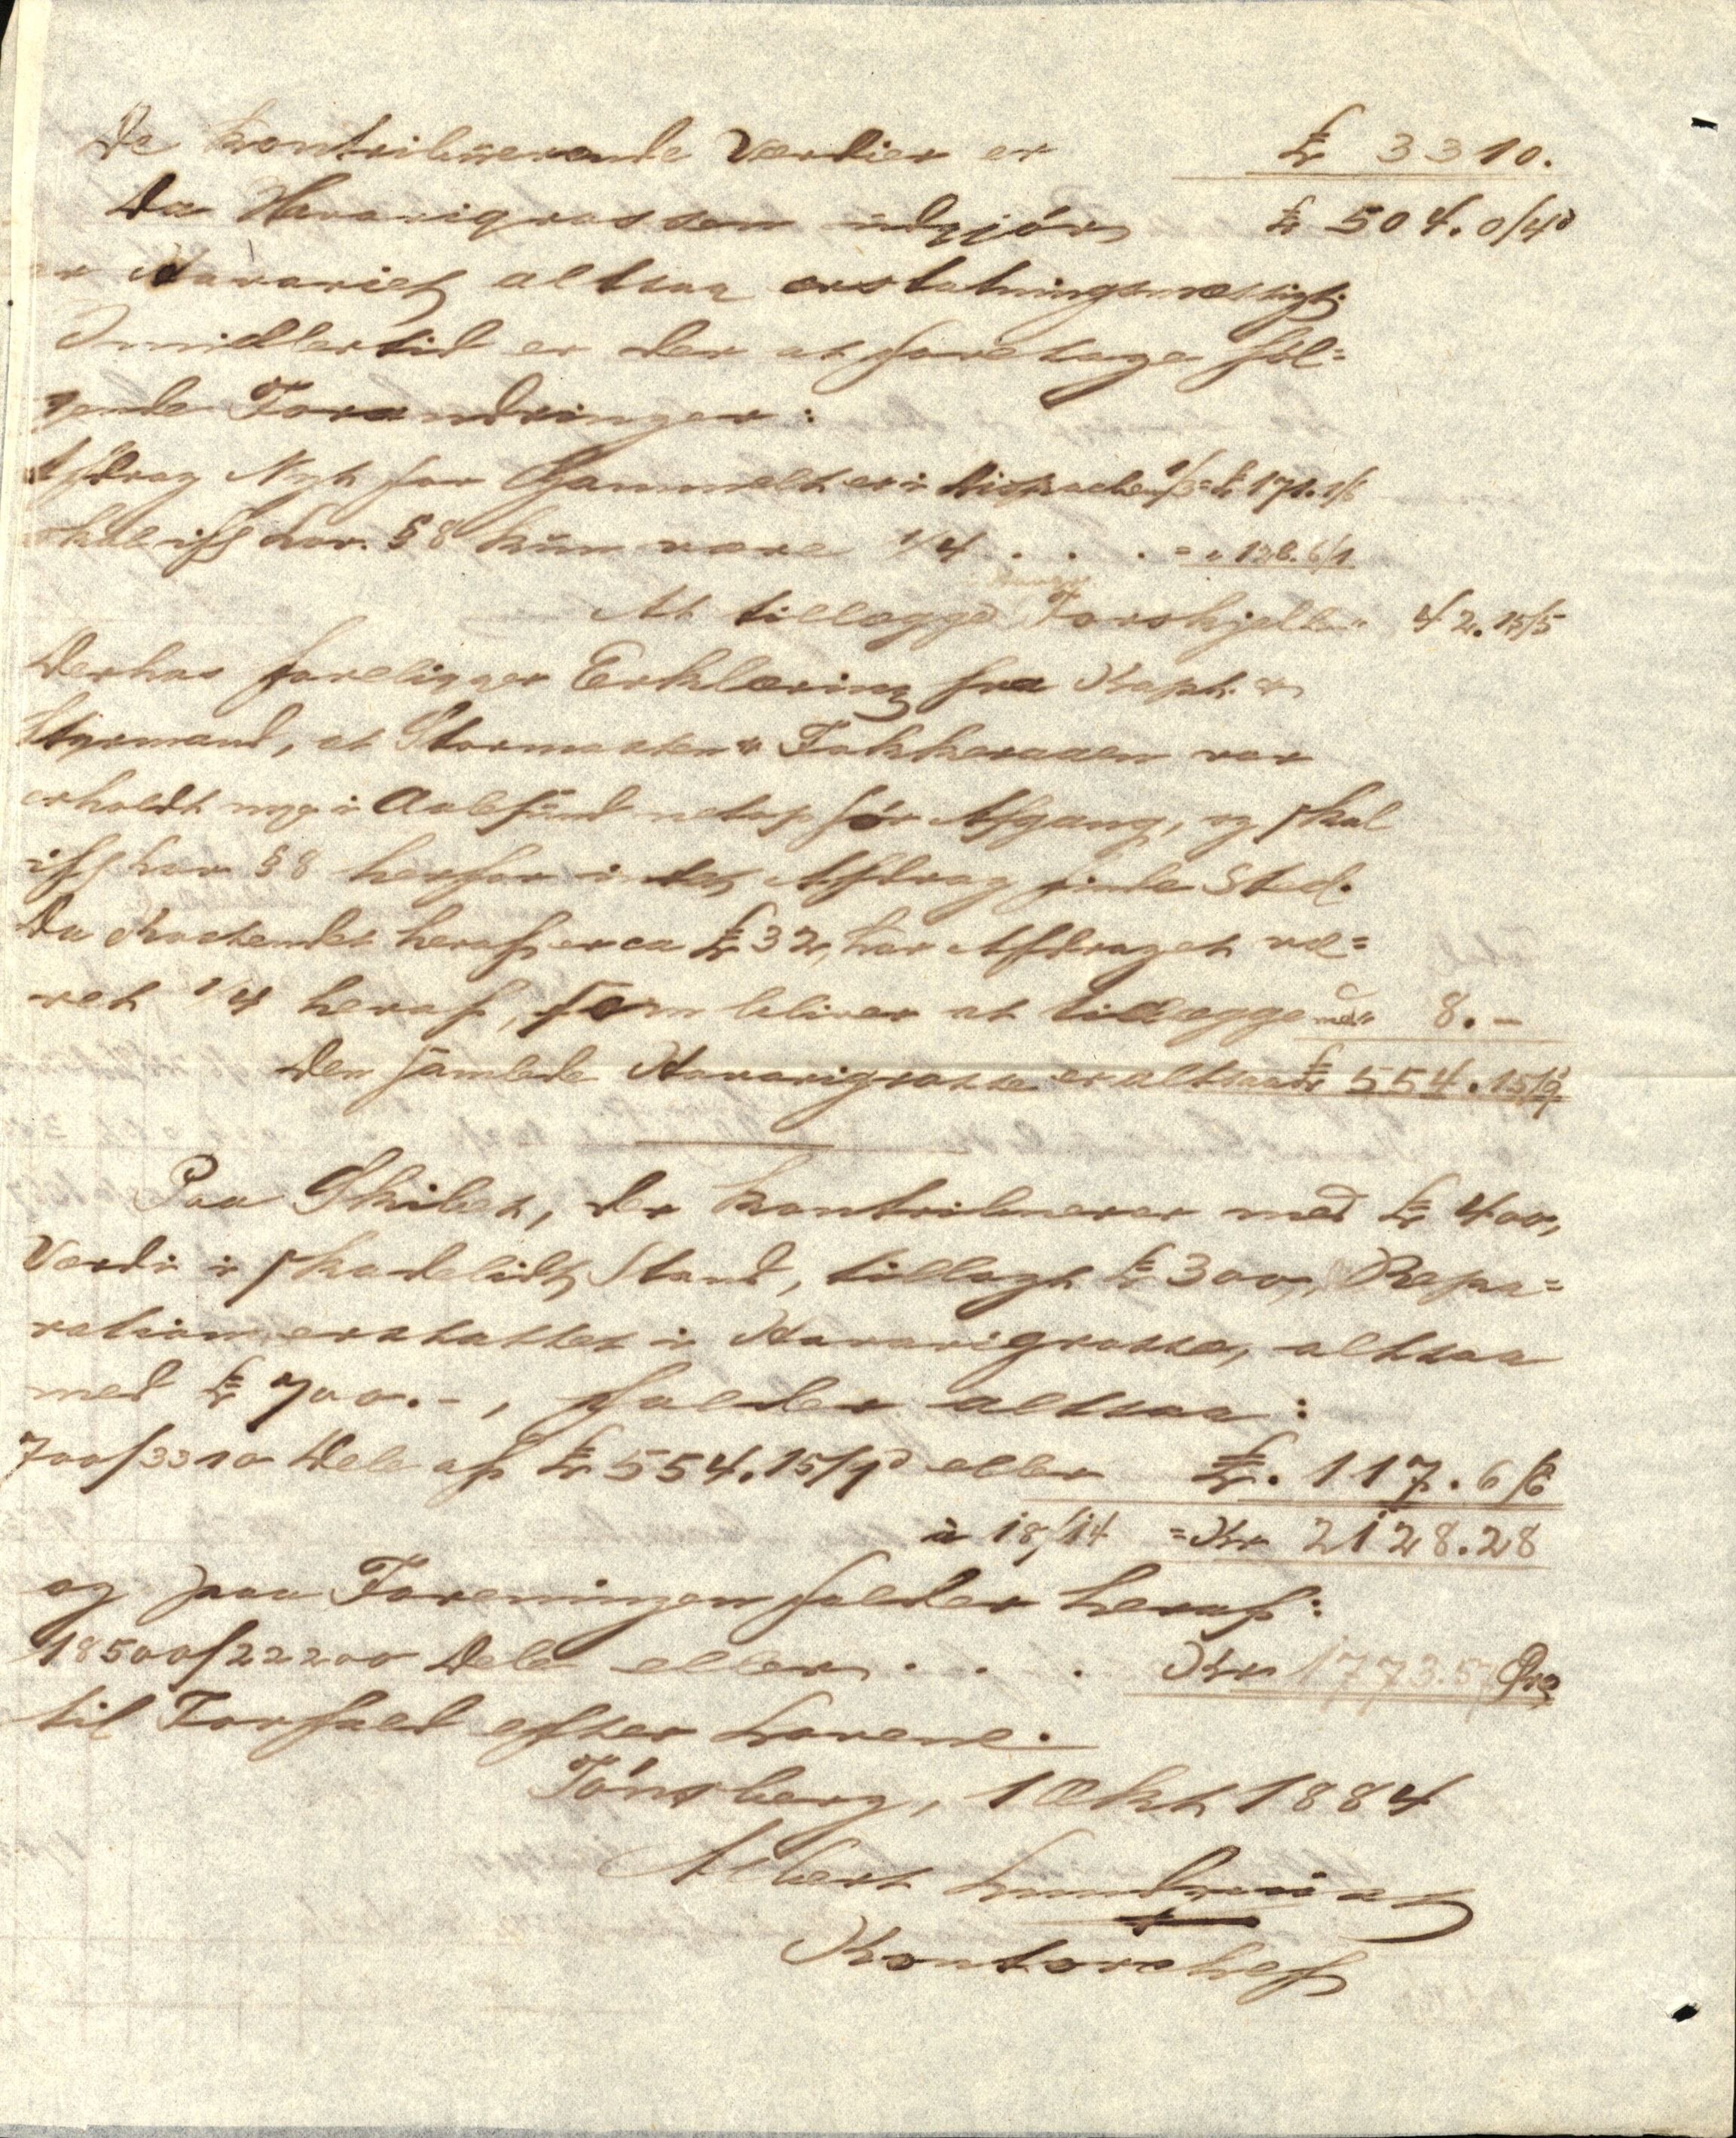 De kontribuerende Værdier er £ 3310.
Da Havarigrossen udgjör £ 504.0/4d
er Havariet altsaa erstatningsmæssigt.
Imidlertid er der at foretage föl=
gende Forandringer:
Afdrag Nyt for Gammelt er i Dispachen 1/3 = £ 171.1/6
skal iflg Lov. § 8 kun være 1/4 . . . = " 128.6/1
At tillægge Forskjellen " 42.15/5
Derhos foreligger Erklæring fra Kapt. &
Styrmand, at Stormasten & Fokkeraaen var
erholdt nye i Aalesund netop för Afgang, og skal
iflg Lov § 8 herfor intet Afdrag finde Sted.
Da Kostendet heraf er ca £ 32, har Afdraget væ=
ret 1/4 heraf, som bliver at tillægge med " 8.-
Den samlede Havarigrosse er altsaa £ 554.15/9d
Paa Skibet, der kontribuerer med £ 400,
Værdi i skadelidt Stand, tillagt £ 300, Repa=
ration erstattet i Havarigrosse, altsaa
med £ 700.-, falder altsaa:
700/3310 Dele af £ 554.15/9d eller £. 117.6/6
à 18/14 = Kr 2128.28
og paa Foreningen falder heraf:
18500/22200 Dele eller . . . Kr 1773.57 Øre
til Forfald efter Lovene.
Tönsberg, 1 Okt 1884
Albert
Kontorchef